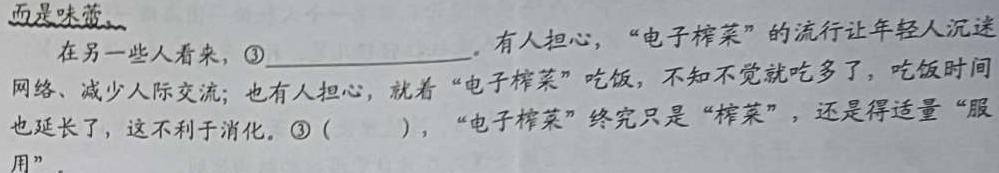 而是味蕾、
在另一些人看来，③____________。有人担心，“电子榨菜”的流行让年轻人沉迷
网络、减少人际交流；也有人担心，就着“电子榨菜”吃饭，不知不觉就吃多了，吃饭时间
也延长了，这不利于消化。③（　　），“电子榨菜”终究只是“榨菜”，还是得适量“服
用”。